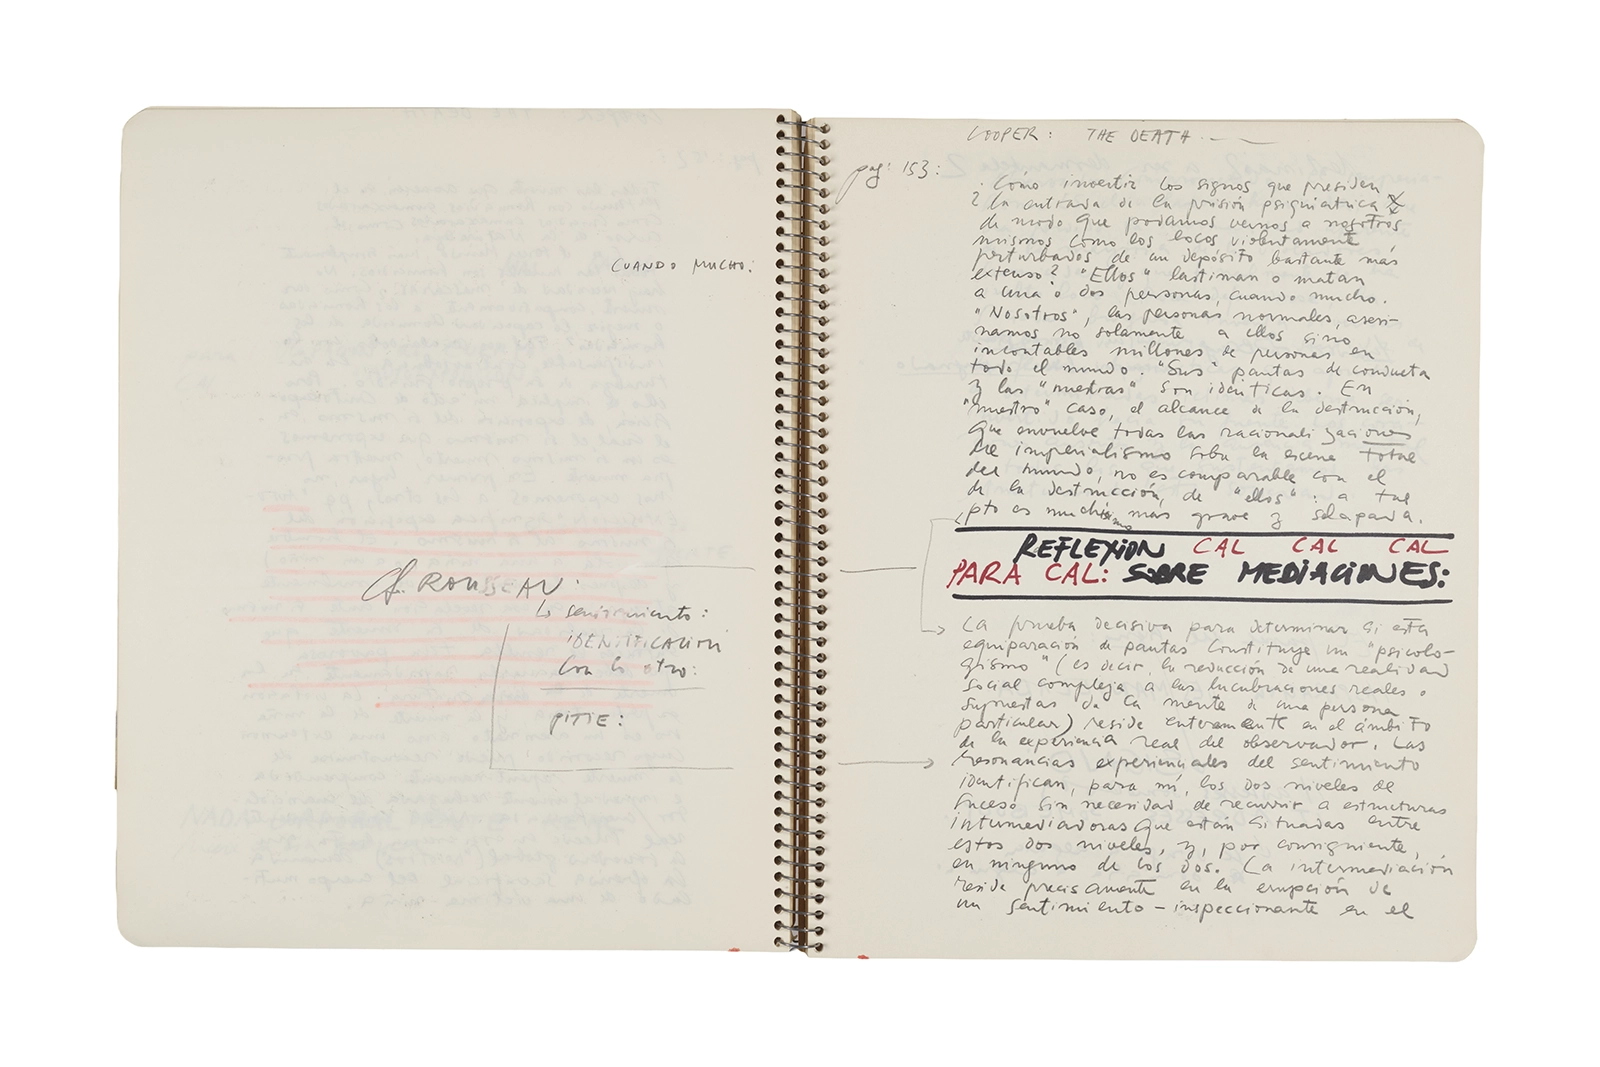 CUANDO MUCHO:
Cf. ROUSSEAU.
Lo sentimiento:
IDENTIFICACION
con lo otro:
PITIE:
COOPER: THE DEATH
pag: 153:
Cómo invertir los signos que presiden
? la entrada de la prisión psiquiatrica
de modo que podamos vernos a nosotros
mismos como los locos violentamente
perturbados de un depósito bastante más
extenso? "Ellos" lastiman o matan
a una o dos personas, cuando mucho.
"Nosotros", las personas normales, asesi-
namos no solamente a ellos sino
incontables millones de personas en
todo el mundo. "Sus" pautas de conducta
y las "nuestras" son idénticas. En
"nuestro" caso, el alcance de la destrucción,
que envuelve todas las racionalizaciones
del imperialismo sobre la escena total
del mundo, no es comparable con el
de la destrucción, de "ellos": a tal
pto es muchísimo más grave y solapada.
REFLEXION CAL CAL CAL
PARA CAL: SOBRE MEDIACIONES:
La prueba decisiva para determinar si esta
equiparación de pautas constituye un "psicolo-
gismo" (es decir, la reducción de una realidad
social compleja a las lucubraciones reales o
supuestas de la mente de una persona
particular) reside enteramente en el ámbito
de la experiencia real del observador. Las
resonancias experienciales del sentimiento
identifican, para mí, los dos niveles de
suceso sin necesidad de recurrir a estructuras
intermediadoras que están situadas entre
estos dos niveles, y, por consiguiente,
en ninguno de los dos. La intermediación
reside precisamente en la erupción de
un sentimiento-inspeccionante en el